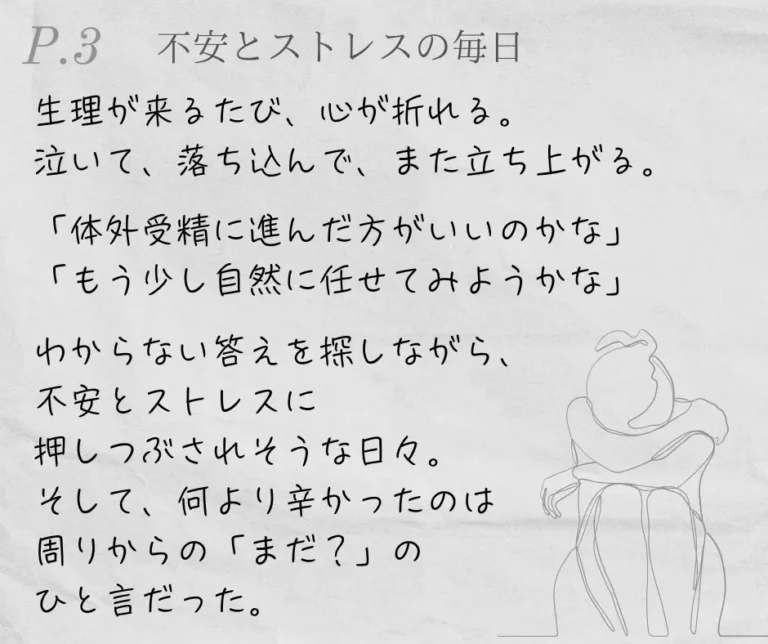 P.3 不安とストレスの毎日
生理が来るたび、心が折れる。
泣いて、落ち込んで、また立ち上がる。
「体外受精に進んだ方がいいのかな」
「もう少し自然に任せてみようかな」
わからない答えを探しながら、
不安とストレスに
押しつぶされそうな日々。
そして、何より辛かったのは
周りからの「まだ？」の
ひと言だった。